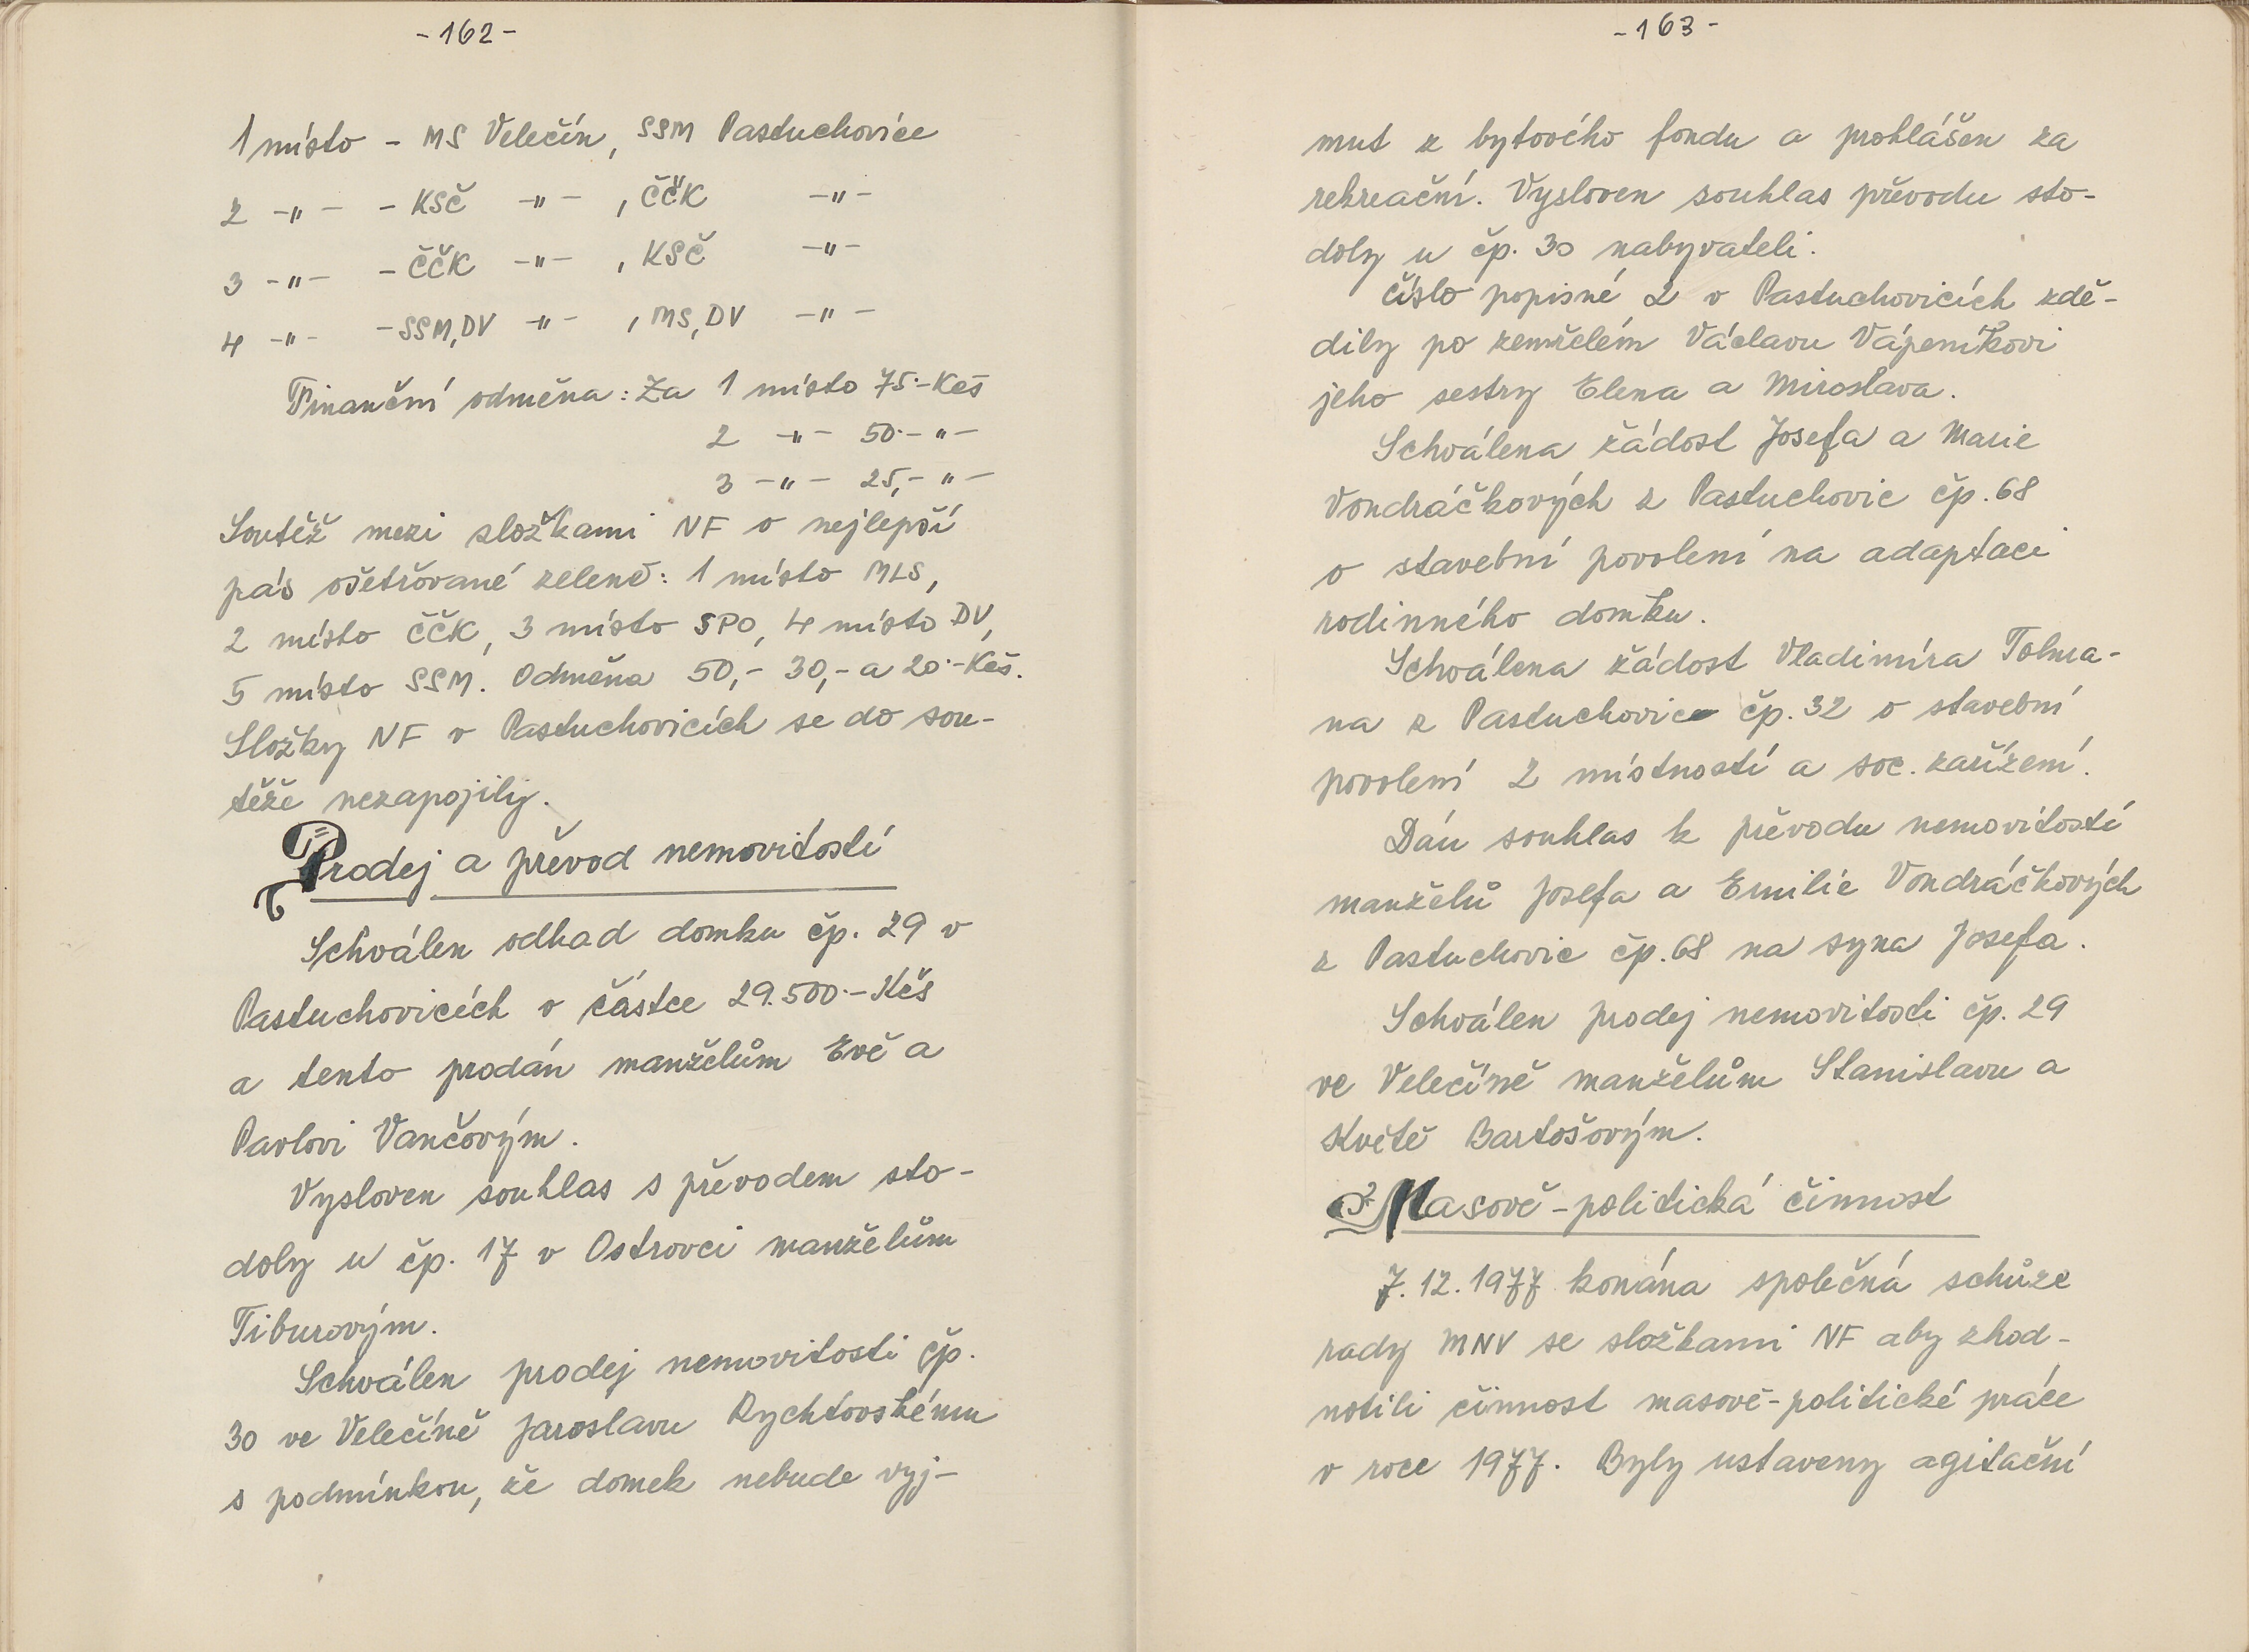 -162-
1 místo - MS Velečín, SSM Pastuchovice
2 -"- - KSČ -"- , ČČK -"-
3 -"- - ČČK -"- , KSČ -"-
4 -"- - SSM, DV -"- , MS, DV -"-
Finanční odměna: Za 1 místo 75.- Kčs
2 -"- 50.- "-
3 -"- 25,- "-
Soutěž mezi složkami NF o nejlepší
pás ošetřované zeleně: 1 místo MLS,
2 místo ČČK, 3 místo SPO, 4 místo DV,
5 místo SSM. Odměna 50,- 30,- a 20.- Kčs.
Složky NF v Pastuchovicích se do sou-
těže nezapojily.
Prodej a převod nemovitostí
Schválen odhad domku čp. 29 v
Pastuchovicích v částce 29.500.- Kčs
a tento prodán manželům Evě a
Pavlovi Vančovým.
Vysloven souhlas s převodem sto-
doly u čp. 17 v Ostrovci manželům
Tiburovým.
Schválen prodej nemovitosti čp.
30 ve Velečíně Jaroslavu Rychtovskému
s podmínkou, že domek nebude vyj-
-163-
mut z bytového fondu a prohlášen za
rekreační. Vysloven souhlas převodu sto-
doly u čp. 30 nabyvateli.
Číslo popisné 2 v Pastuchovicích zdě-
dily po zemřelém Václavu Vápeníkovi
jeho sestry Elena a Miroslava.
Schválena žádost Josefa a Marie
Vondráčkových z Pastuchovic čp. 68
o stavební povolení na adaptaci
rodinného domku.
Schválena žádost Vladimíra Tolma-
na z Pastuchovic čp. 32 o stavební
povolení 2 místností a soc. zařízení.
Dán souhlas k převodu nemovitostí
manželů Josefa a Emilie Vondráčkových
z Pastuchovic čp. 68 na syna Josefa.
Schválen prodej nemovitosti čp. 29
ve Velečíně manželům Stanislavu a
Květě Bartošovým.
Masově-politická činnost
7. 12. 1977 konána společná schůze
rady MNV se složkami NF aby zhod-
notili činnost masově-politické práce
v roce 1977. Byly ustaveny agitační